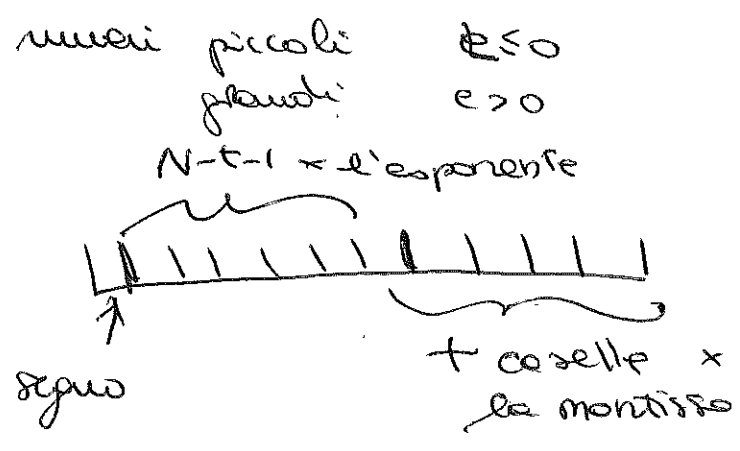 numeri piccoli e≤0
grandi e>0
N-t-1 x l'esponente
segno
t caselle x
la mantissa